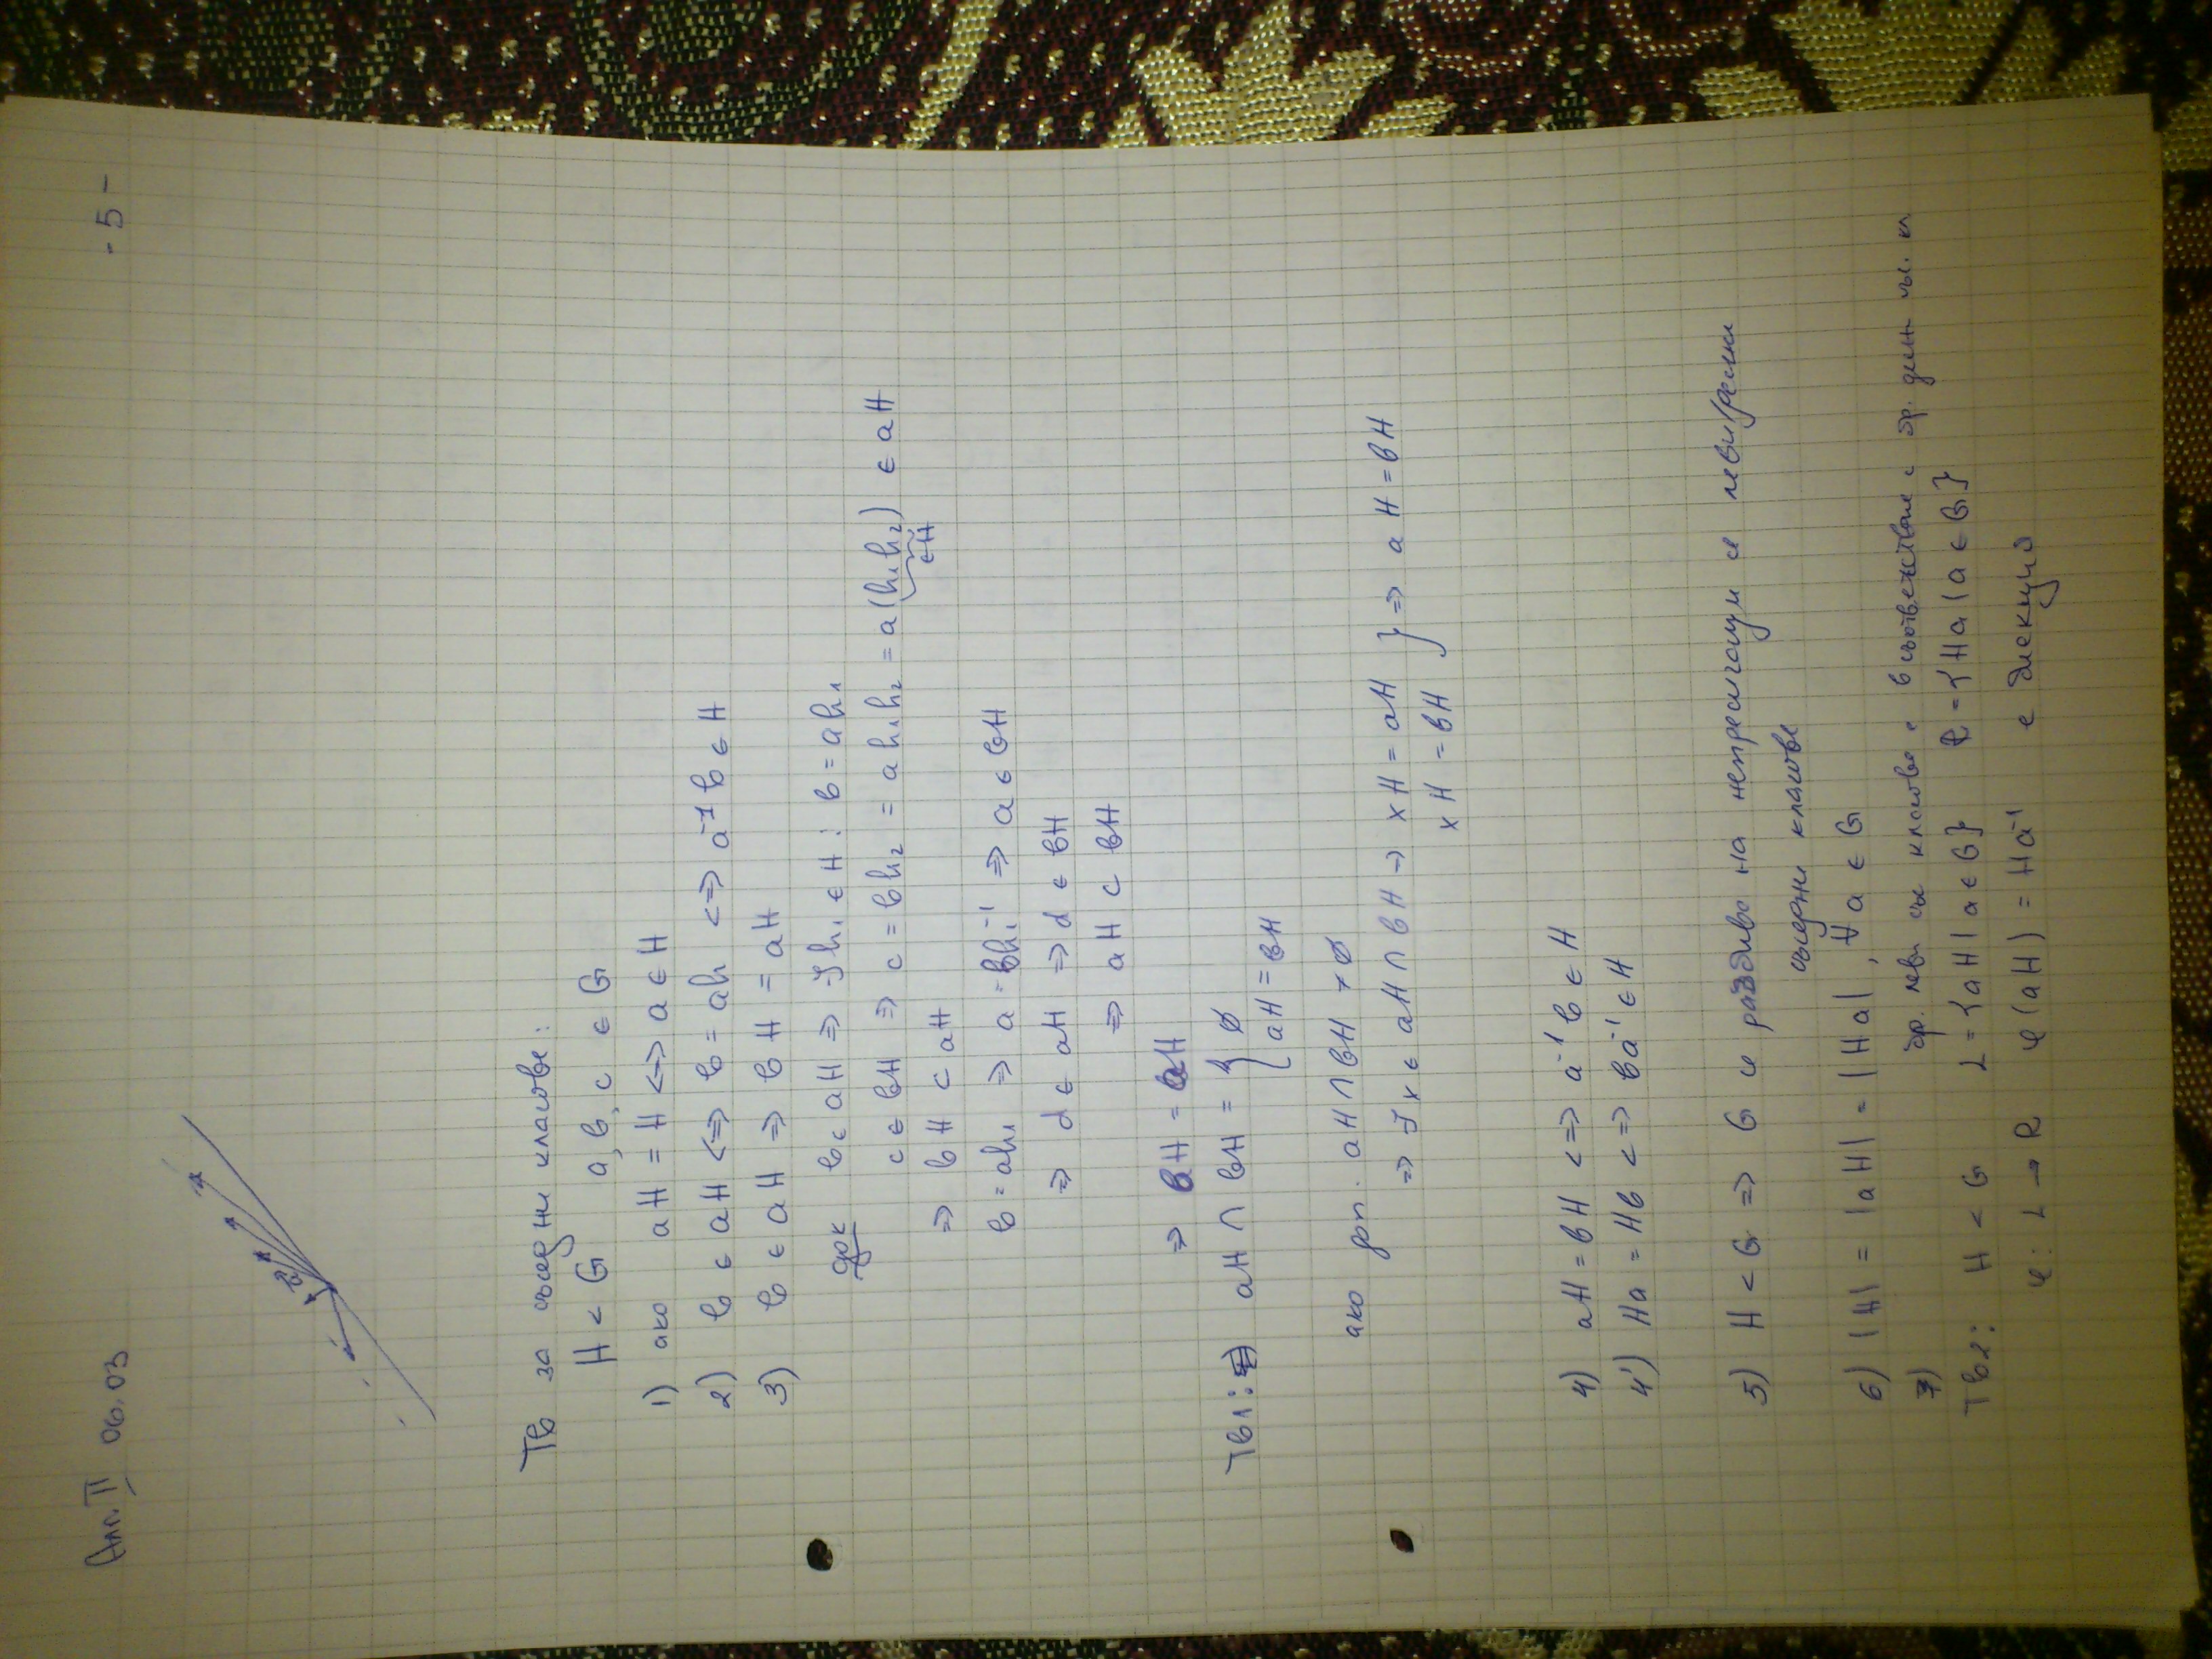 Алг. II 06.03
- 5 -
Тв за съседни класове:
H < G a, b, c ∈ G
1) ако aH = H <=> a ∈ H
2) b ∈ aH <=> b = ah <=> a⁻¹b ∈ H
3) b ∈ aH => bH = aH
док b ∈ aH => ∃h₁ ∈ H : b = ah₁
c ∈ bH => c = bh₂ = ah₁h₂ = a(h₁h₂) ∈ aH
∈H
=> bH ⊂ aH
b = ah₁ => a = bh₁⁻¹ => a ∈ bH
=> d ∈ aH => d ∈ bH
=> aH ⊂ bH
=> bH = aH
Тв1: aH ∩ bH = { ∅
{ aH = bH
ако доп. aH ∩ bH ≠ ∅
=> ∃x ∈ aH ∩ bH → xH = aH } => aH = bH
xH = bH
4) aH = bH <=> a⁻¹b ∈ H
4') Ha = Hb <=> ba⁻¹ ∈ H
5) H < G => G се разбива на непресичащи се леви/десни
съседни класове
6) |H| = |aH| = |Ha|, ∀ a ∈ G
7) бр. леви със класове е в съответствие с бр. десн. със. кл
Тв2: H < G L = {aH | a ∈ G} R = {Ha | a ∈ G}
φ: L → R φ(aH) = Ha⁻¹ е биекция